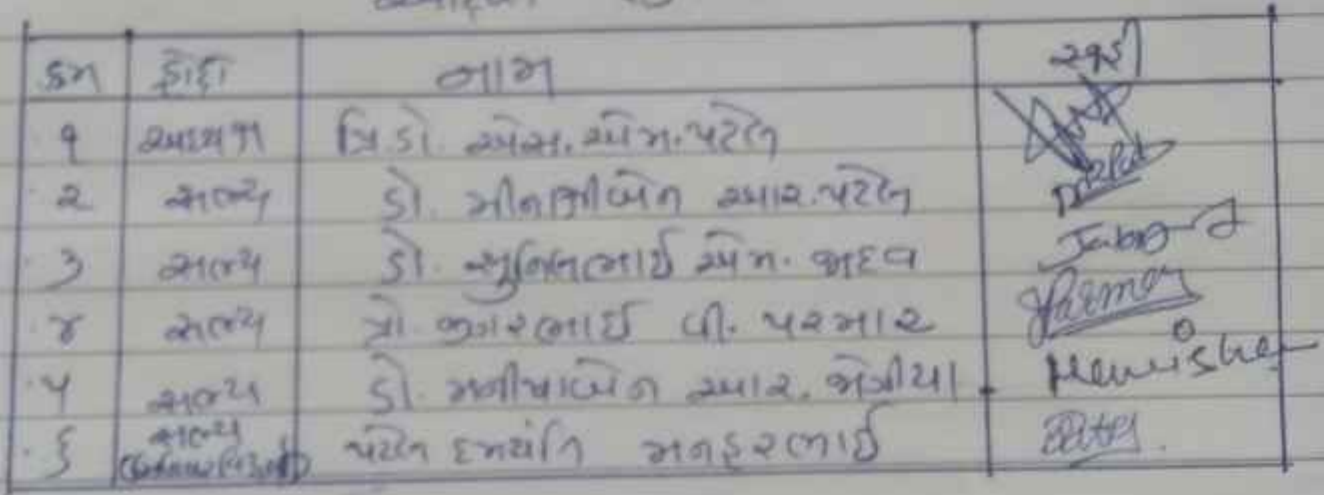 ક્રમ હોદ્દો નામ સહી
૧ અધ્યક્ષ પ્રિ.ડૉ. એસ.એમ.પટેલ
૨ સભ્ય ડૉ. મીનાક્ષીબેન આર.પટેલ
૩ સભ્ય ડૉ. સુનિલભાઈ એમ. જાદવ
૪ સભ્ય પ્રો. પી. પરમાર Parmar
૫ સભ્ય ડૉ. મનીષાબેન આર. Manisha
૬ સભ્ય પટેલ દમયંતિ મનહરભાઈ